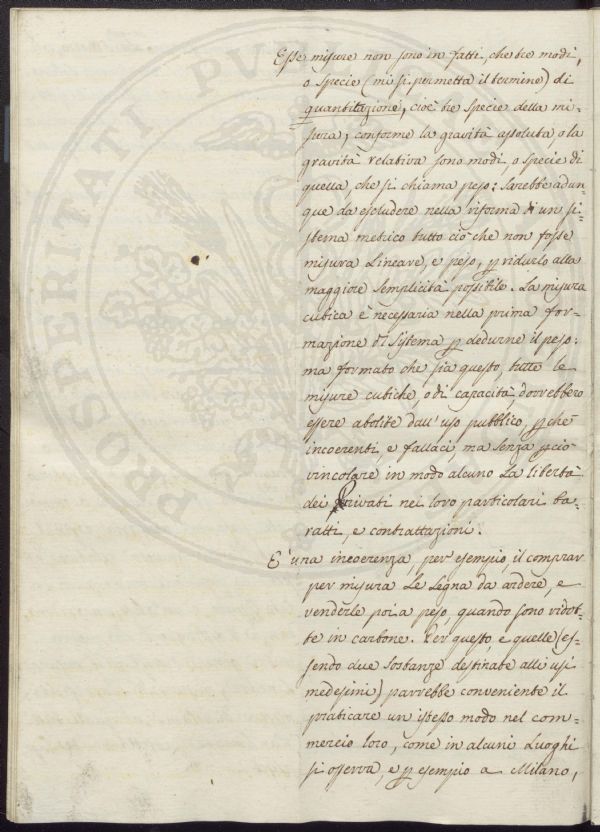 PROSPERITATI PUB
Esse misure non sono in fatti, che tre modi,
o specie (mi si permetta il termine) di
quantitazione, cioè tre specie della mi=
sura; conforme la gravità assoluta, o la
gravità relativa sono modi, o specie di
quella, che si chiama peso: sarebbe adun=
que da escludere nella riforma di un si=
stema metrico tutto ciò che non fosse
misura Lineare, e peso, p ridurlo alla
maggiore semplicità possibile. La misura
cubica è necessaria nella prima for=
mazione di Sistema p dedurne il peso:
ma formato che sia questo, tutte le
misure cubiche, o di capacità, dovrebbero
essere abolite dall'uso pubblico, pchè
incoerenti, e fallaci, ma senza pciò
vincolare in modo alcuno La libertà
dei Privati nei loro particolari ba=
ratti, e contrattazioni.
E' una incoerenza, per esempio, il comprar
per misura Le Legna da ardere, e
venderle poi a peso, quando sono ridot=
te in carbone. Per questo, e quelle (es=
sendo due sostanze destinate alli usi
medesimi) parrebbe conveniente il
praticare un istesso modo nel com=
mercio loro, come in alcuni Luoghi
si osserva, e p esempio a Milano,